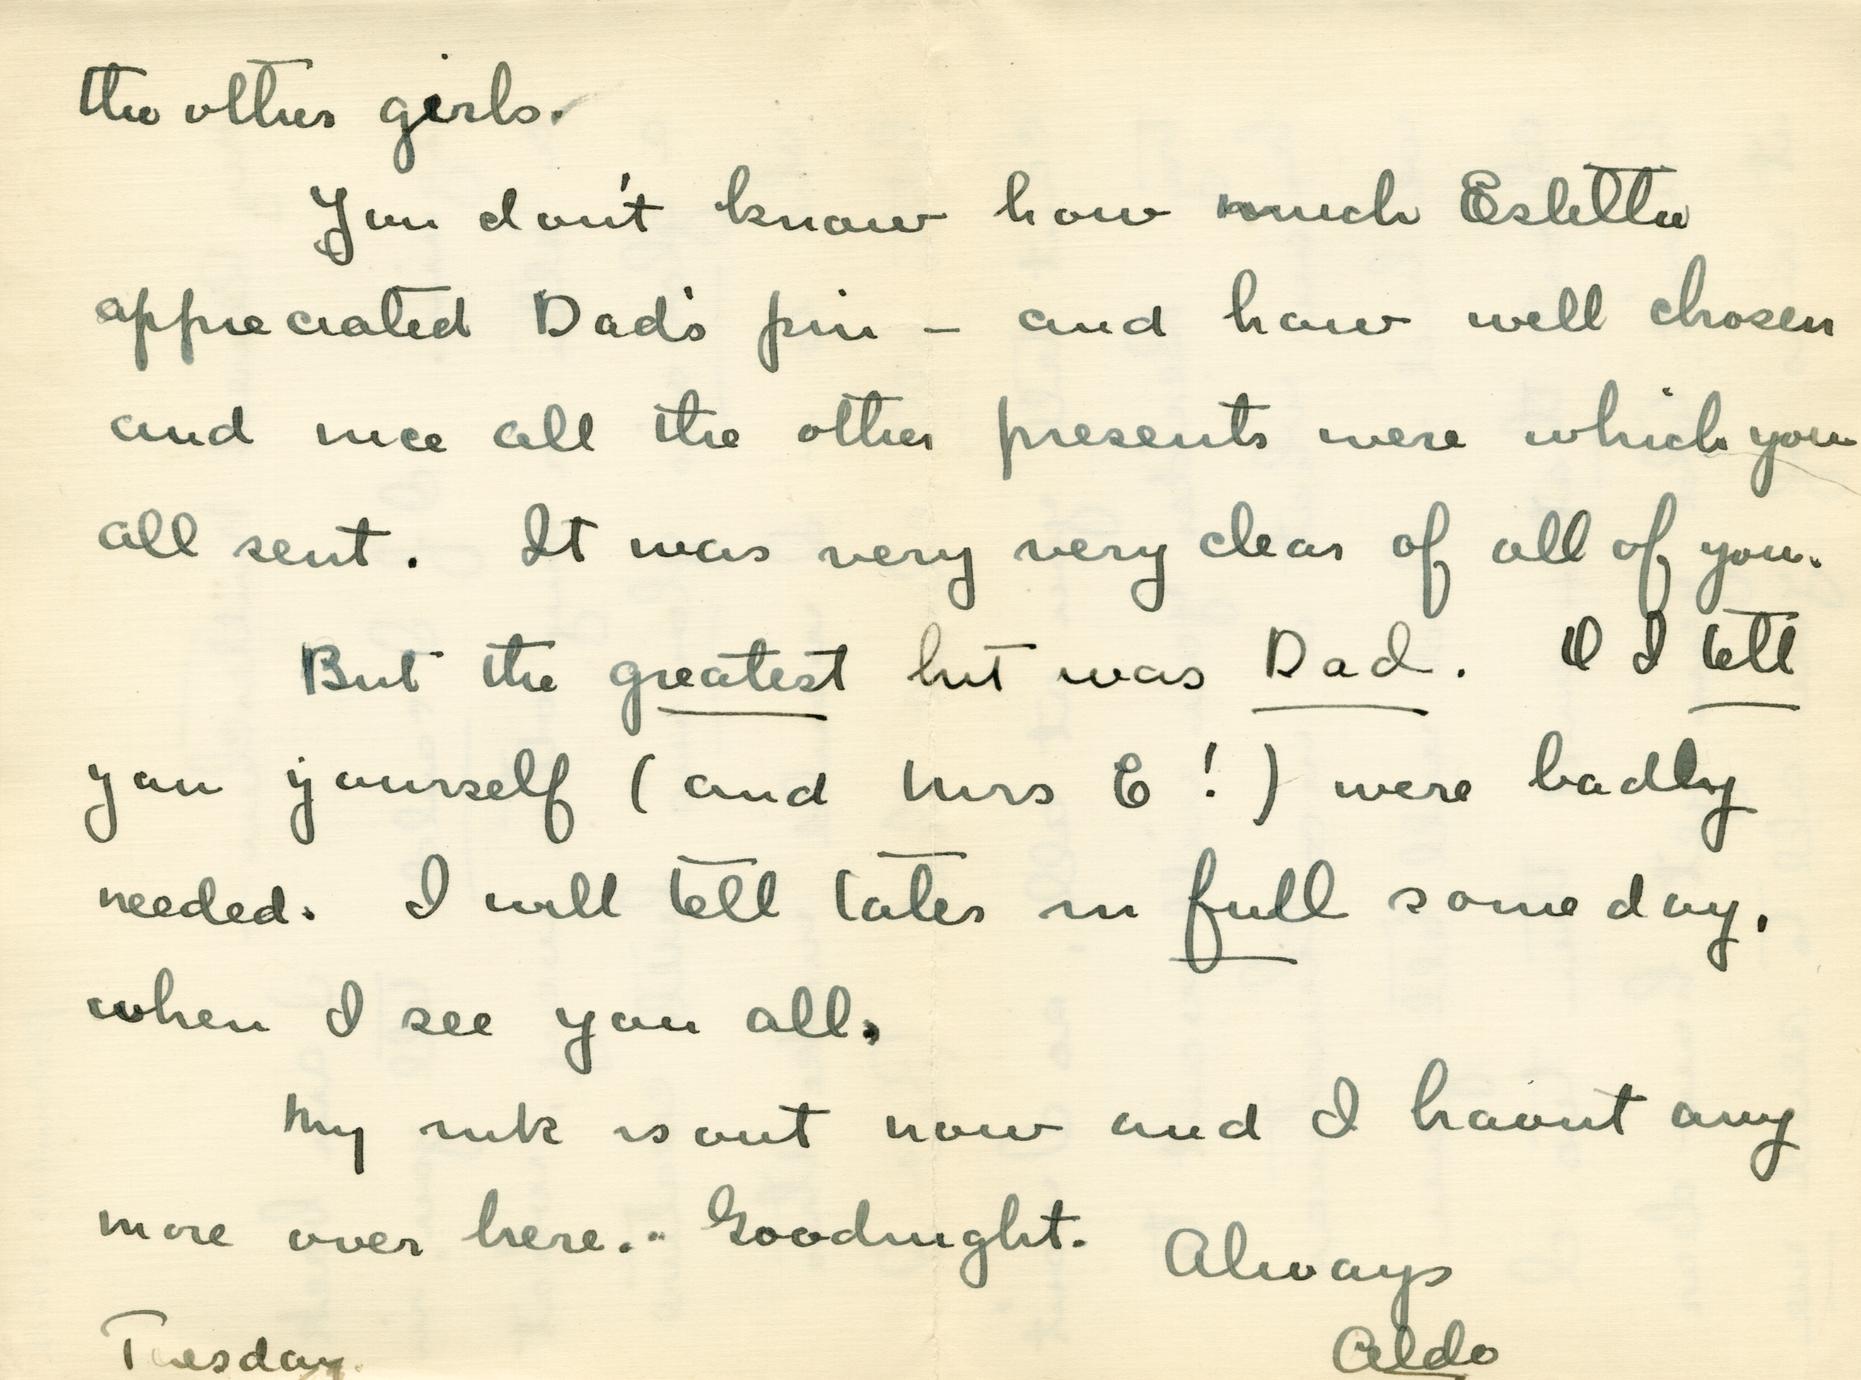 the other girls.
You don't know how much Estella
appreciated Dad's pin — and how well chosen
and nice all the other presents were which you
all sent. It was very very clear of all of you.
But the greatest hit was Dad. O I tell
you yourself (and Mrs E!) were badly
needed. I will tell tales in full some day,
when I see you all.
My ink is out now and I havnt any
more over here. - Goodnight.
Always
Aldo
Tuesday.